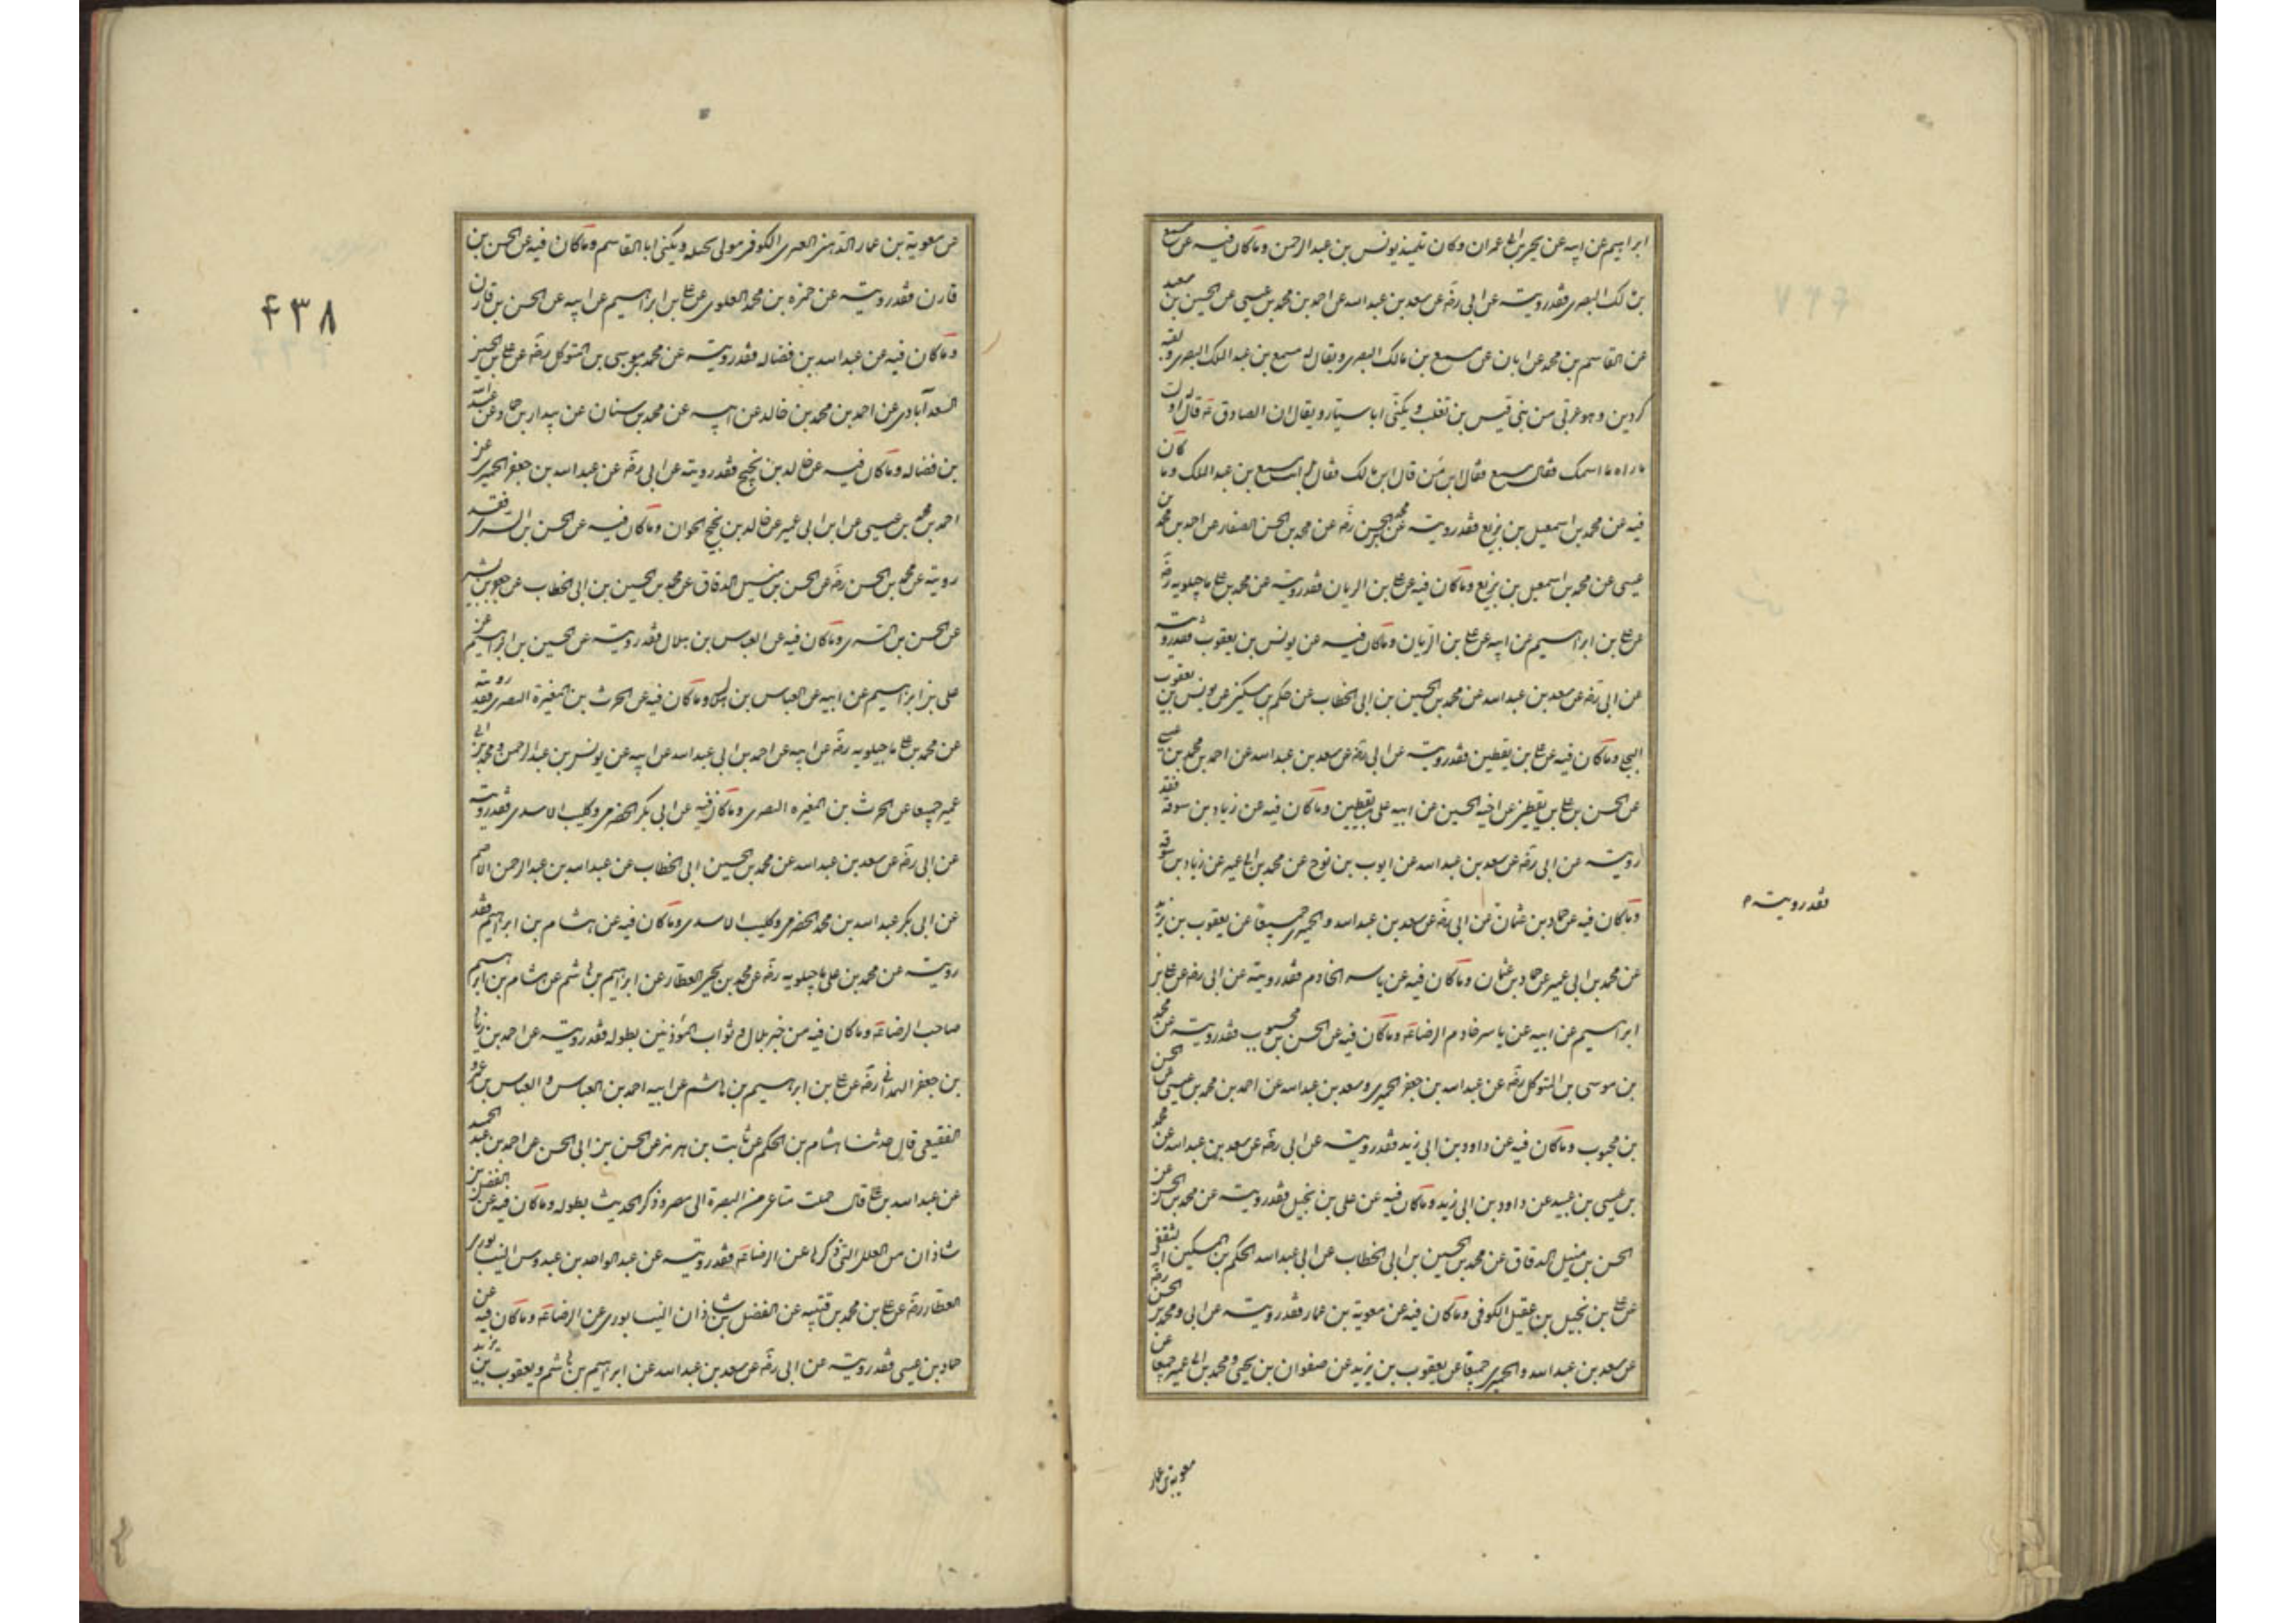 ابراهيم عن ابيه عن يحيى بن ابي عمران وكان تلميذ يونس بن عبد الرحمن وماكان فيه عن مسمع
بن مالك البصرى فقد رويته عن ابى رضه عن سعد بن عبد الله عن احمد بن محمد بن عيسى عن الحسين بن سعيد
عن القاسم بن محمد عن ابان عن مسمع بن مالك البصرى ويقال له مسمع بن عبد الملك البصرى ولقبه
كردين وهو عربى من بنى قيس بن ثعلب ويكنى ابا سيار ويقال ان الصادق ع قال له اول
ما راه ما اسمك فقال مسمع فقال ابن من قال ابن مالك فقال بل انت مسمع بن عبد الملك وما كان
فيه عن محمد بن اسمعيل بن بزيع فقد رويته عن محمد بن الحسن رضه عن محمد بن الحسن الصفار عن احمد بن محمد بن
عيسى عن محمد بن اسمعيل بن بزيع وماكان فيه عن على بن الريان فقد رويته عن محمد بن على ماجلويه رضه
عن على بن ابراهيم عن ابيه عن على بن الريان وماكان فيه عن يونس بن يعقوب فقد رويته
عن ابى رضه عن سعد بن عبد الله عن محمد بن الحسين بن ابى الخطاب عن حكم بن مسكين عن يونس بن يعقوب
البجلى وماكان فيه عن على بن يقطين فقد رويته عن ابى رضه عن سعد بن عبد الله عن احمد بن محمد بن عيسى
عن الحسن بن على بن يقطين عن اخيه الحسين عن ابيه على بن يقطين وماكان فيه عن زياد بن سوقة فقد
رويته عن ابى رضه عن سعد بن عبد الله عن ايوب بن نوح عن محمد بن ابى عمير عن زياد بن سوقة
وماكان فيه عن حماد بن عثمان عن ابى رضه عن سعد بن عبد الله والحميرى جميعا عن يعقوب بن يزيد
فقد رويته م
عن محمد بن ابى عمير عن حماد بن عثمان وماكان فيه عن ياسر الخادم فقد رويته عن ابى رضه عن على بن
ابراهيم عن ابيه عن ياسر خادم الرضا ع وماكان فيه عن الحسن بن محبوب فقد رويته عن محمد
بن موسى بن المتوكل رضه عن عبد الله بن جعفر الحميرى وسعد بن عبد الله عن احمد بن محمد بن عيسى عن الحسن
بن محبوب وماكان فيه عن داود بن ابى زيد فقد رويته عن ابى رضه عن سعد بن عبد الله عن محمد
بن عيسى بن عبيد عن داود بن ابى زيد وماكان فيه عن على بن بجيل فقد رويته عن محمد بن الحسن عن
الحسن بن متيل الدقاق عن محمد بن الحسين بن ابى الخطاب عن ابى عبد الله الحكم بن المسكين الثقفى
عن على بن بجيل بن عقيل الكوفى وماكان فيه عن معوية بن عمار فقد رويته عن ابى ومحمد بن الحسن رضه
عن سعد بن عبد الله والحميرى جميعا عن يعقوب بن يزيد عن صفوان بن يحيى ومحمد بن ابى عمير جميعا عن
معوية بن عمار
٤٣٨
عن معوية بن عمار الدهنى الغنوى الكوفى مولى بجيله ويكنى ابا القاسم وماكان فيه عن الحسن بن
قارن فقد رويته عن حمزه بن محمد العلوى عن على بن ابراهيم عن ابيه عن الحسن بن قارن
وماكان فيه عن عبد الله بن فضاله فقد رويته عن محمد بن موسى بن المتوكل رضه عن على بن الحسين
السعدآبادى عن احمد بن محمد بن خالد عن ابيه عن محمد بن سنان عن بندار بن حماد عن عبد الله
بن فضاله وماكان فيه عن خالد بن نجيح فقد رويته عن ابى رضه عن عبد الله بن جعفر الحميرى عن
احمد بن محمد بن عيسى عن ابن ابى عمير عن خالد بن نجيح الجوان وماكان فيه عن الحسن بن السرى فقد
رويته عن محمد بن الحسن رضه عن الحسن بن متيل الدقاق عن محمد بن الحسين بن ابى الخطاب عن جعفر بن بشير
عن الحسن بن السرى وماكان فيه عن العباس بن هلال فقد رويته عن الحسين بن ابراهيم عن
على بن ابراهيم عن ابيه عن العباس بن هلال وماكان فيه عن الحرث بن المغيرة النصرى فقد رويته
عن محمد بن على ماجيلويه رضه عن ابيه عن احمد بن ابى عبد الله عن ابيه عن يونس بن عبد الرحمن ومحمد بن ابى
عمير جميعا عن الحرث بن المغيره النصرى وماكان فيه عن ابى بكر الحضرمى وكليب الاسدى فقد رويته
عن ابى رضه عن سعد بن عبد الله عن محمد بن الحسين ابى الخطاب عن عبد الله بن عبد الرحمن الاصم
عن ابى بكر عبد الله بن محمد الحضرمى وكليب الاسدى وماكان فيه عن هشام بن ابراهيم فقد
رويته عن محمد بن على ماجيلويه رضه عن محمد بن يحيى العطار عن ابراهيم بن هاشم عن هشام بن ابراهيم
صاحب الرضا ع وماكان فيه من خبر بلال وثواب المؤذنين بطوله فقد رويته عن احمد بن زياد
بن جعفر الهمدانى رضه عن على بن ابراهيم بن هاشم عن ابيه احمد بن العباس والعباس بن عمرو
الفقيمى قال حدثنا هشام بن الحكم عن ثابت بن هرمز عن الحسن بن ابى الحسن عن احمد بن عبد الحميد
عن عبد الله بن على قال حملت متاعى من البصرة الى مصر وذكر الحديث بطوله وماكان فيه عن الفضل بن
شاذان من العلل التى ذكرها عن الرضا ع فقد رويته عن عبد الواحد بن عبدوس النيسابورى
العطار رضه عن على بن محمد بن قتيبه عن الفضل بن شاذان النيسابورى عن الرضا ع وماكان فيه عن
حماد بن عيسى فقد رويته عن ابى رضه عن سعد بن عبد الله عن ابراهيم بن هاشم ويعقوب بن يزيد